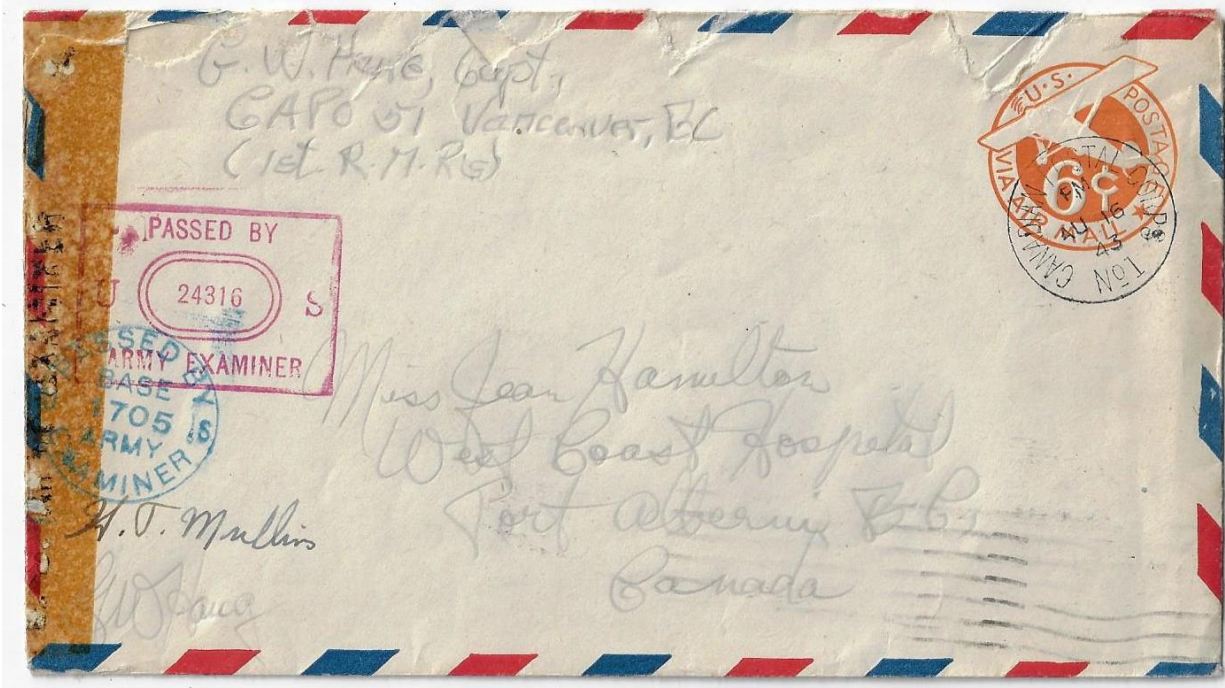 G. W. Haug, Capt,
CAPO 51 Vancouver, BC
(1st R.M. Rg)
U.S. POSTAGE
VIA AIR MAIL
6¢
CANADIAN POSTAL CORPS
PM
AU 16
43
PASSED BY
U 24316 S
ARMY EXAMINER
PASSED BY
BASE
1705
ARMY
EXAMINER
Miss Jean Hamilton
West Coast Hospital
Port Alberni B.C.,
Canada
H. T. Mullins
GW Haug